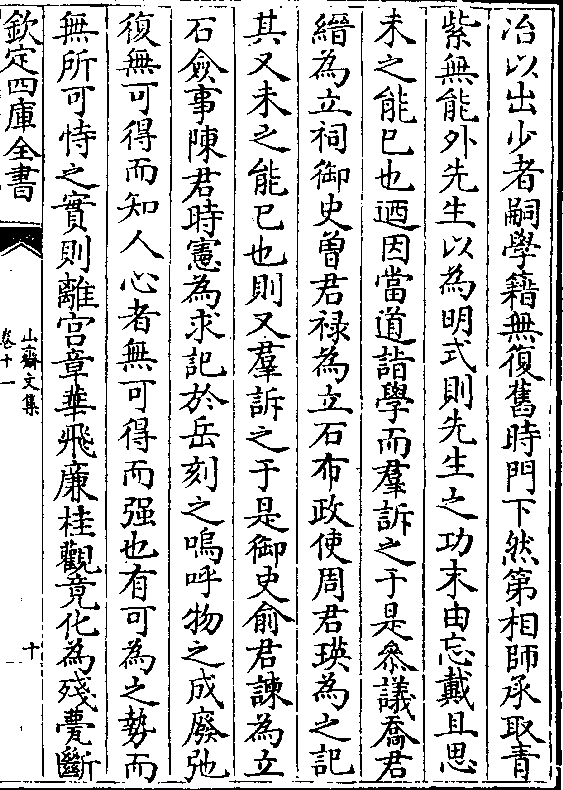 冶以出少者嗣學籍無復舊時門下然第相師承取青
紫無能外先生以為明式則先生之功末由忘戴且思
未之能已也迺因當道詣學而羣訴之于是叅議喬君
縉為立祠御史曽君禄為立石布政使周君瑛為之記
其又未之能已也則又羣訴之于是御史俞君諫為立
石僉事陳君時憲為求記於岳刻之嗚呼物之成廢弛
復無可得而知人心者無可得而强也有可為之勢而
無所可恃之實則離宫章華飛亷桂觀竟化為殘甍斷
欽定四庫全書
山齋文集
卷十一
十